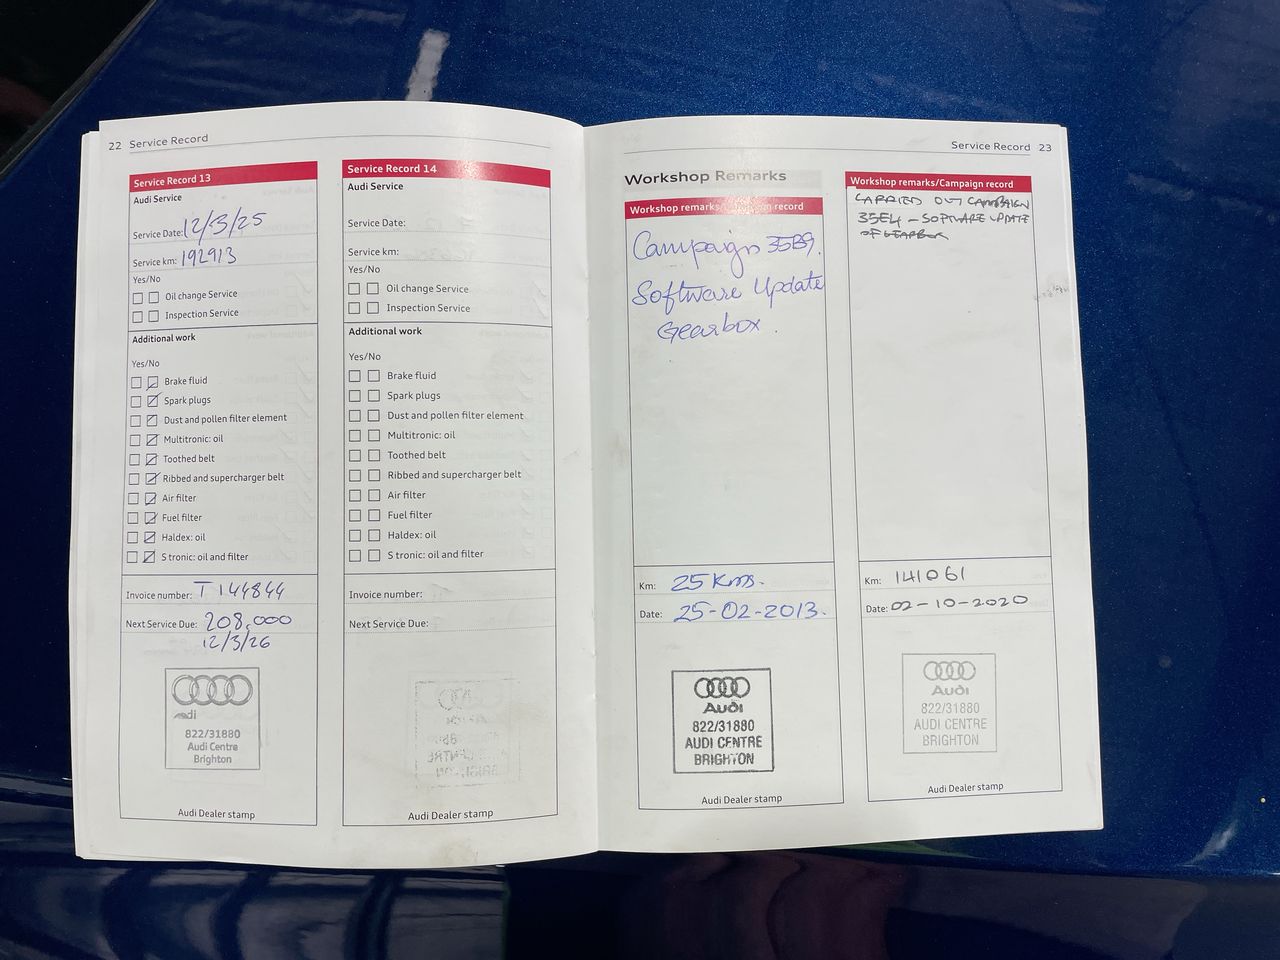 22 Service Record
Service Record 13
Audi Service
Service Date: 12/3/25
Service km: 192913
Yes/No
Oil change Service
Inspection Service
Additional work
Yes/No
Brake fluid
Spark plugs
Dust and pollen filter element
Multitronic: oil
Toothed belt
Ribbed and supercharger belt
Air filter
Fuel filter
Haldex: oil
S tronic: oil and filter
Invoice number: T144844
Next Service Due: 208,000
12/3/26
di
822/31880
Audi Centre
Brighton
Audi Dealer stamp
Service Record 14
Audi Service
Service Date:
Service km:
Yes/No
Oil change Service
Inspection Service
Additional work
Yes/No
Brake fluid
Spark plugs
Dust and pollen filter element
Multitronic: oil
Toothed belt
Ribbed and supercharger belt
Air filter
Fuel filter
Haldex: oil
S tronic: oil and filter
Invoice number:
Next Service Due:
Audi Dealer stamp
Service Record 23
Workshop Remarks
Workshop remarks/ record
Campaign 35B9.
Software Update
Gearbox.
Km: 25 Kms.
Date: 25-02-2013.
Audi
822/31880
AUDI CENTRE
BRIGHTON
Audi Dealer stamp
Workshop remarks/Campaign record
CARRIED OUT CAMPAIGN
35E4 - SOFTWARE UPDATE
OF GEARBOX
Km: 141061
Date: 02-10-2020
Audi
822/31880
AUDI CENTRE
BRIGHTON
Audi Dealer stamp